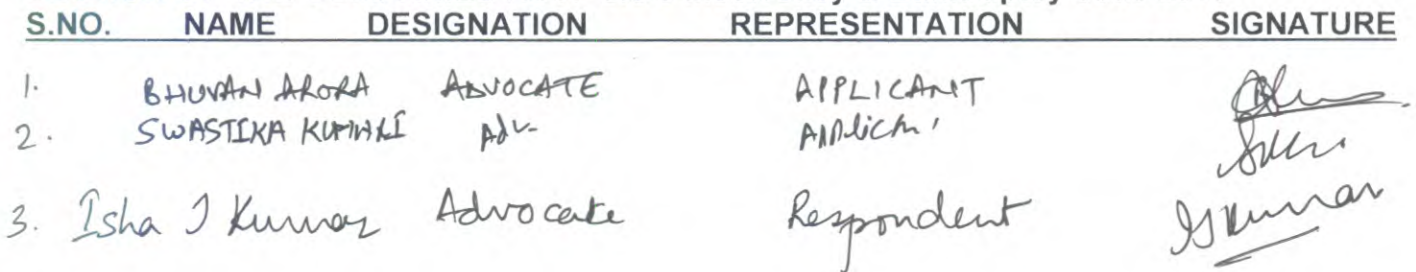 S.NO. NAME DESIGNATION REPRESENTATION SIGNATURE
1. BHUVAN ARORA ADVOCATE APPLICANT
2. SWASTIKA KUMARI Adv. Applicant
3. Isha J Kumar Advocate Respondent IJKumar